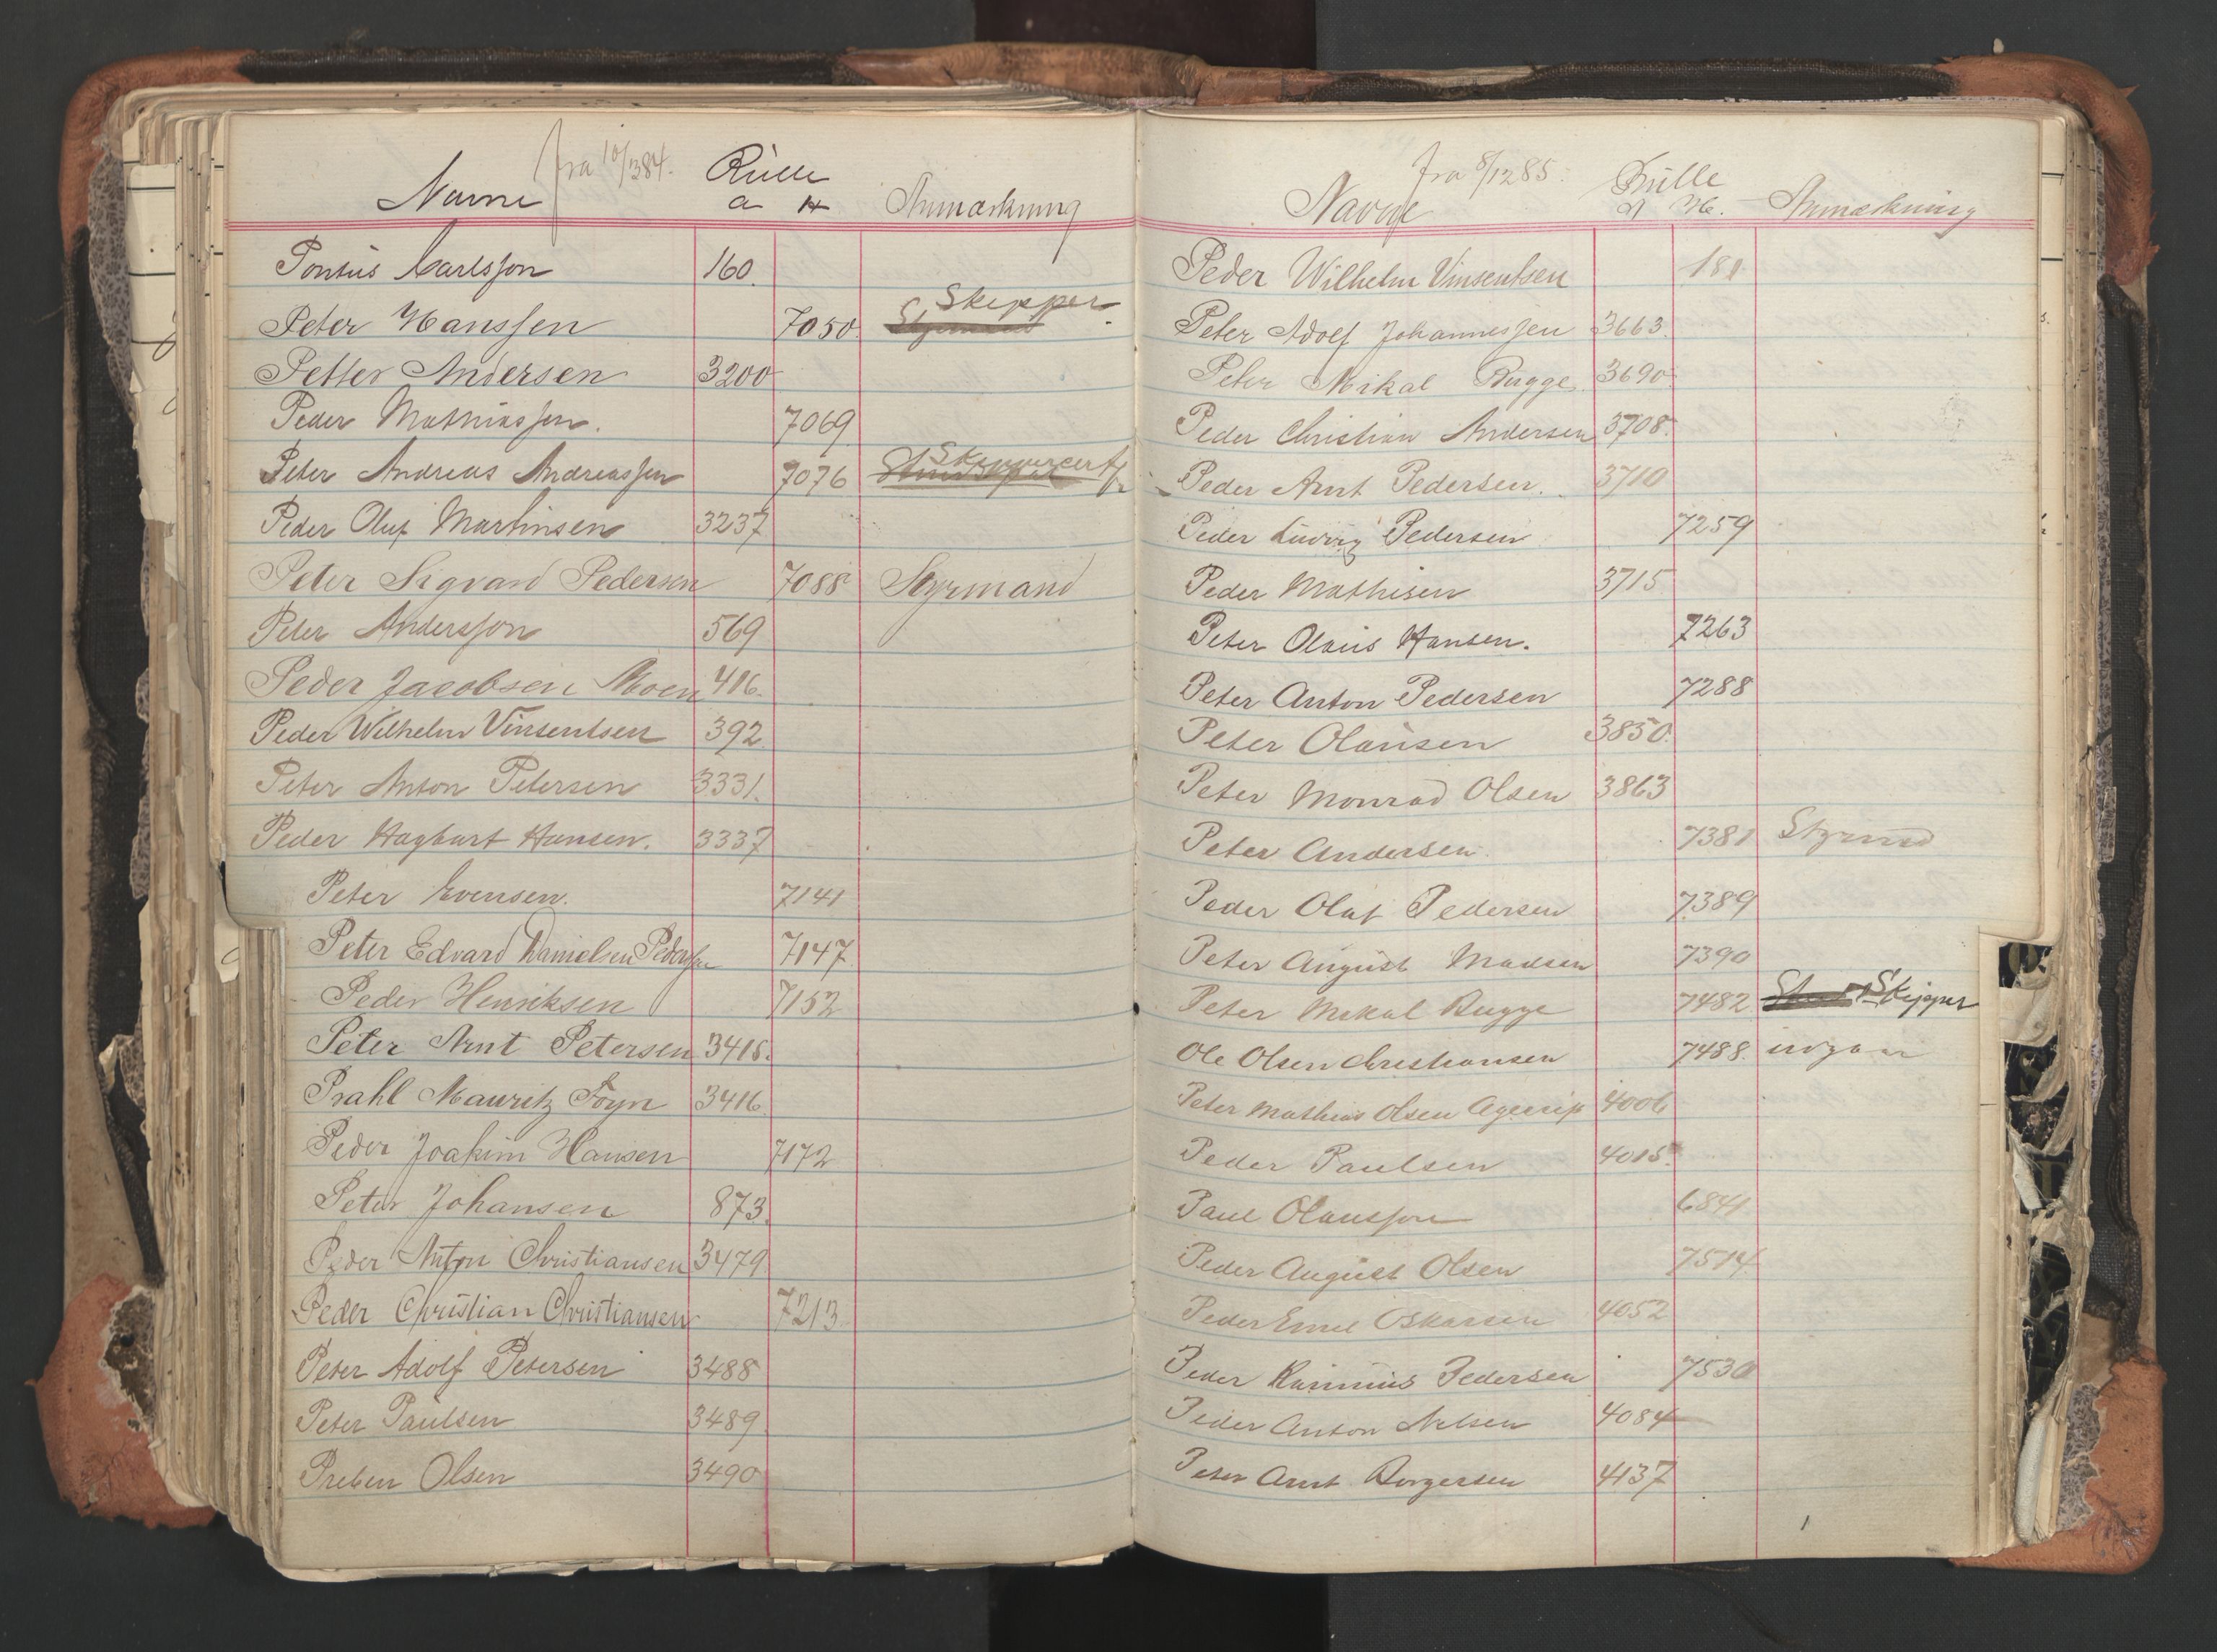 fra 10/3 84.
Navne Rulle Anmærkning
a H
Pontus Carlsson 160.
Skipper.
Peter Hanssen 7050. Styrmand
Petter Andersen 3200
Peder Mathiassen. 7069
Skippercertf
Peter Andreas Andreassen 7076
Peder Oluf Martinsen 3237
Peter Sigvard Pedersen 7088 Styrmand
Peter Andersson 569
Peder Jacobsen Moen 416.
Peder Wilhelm Vinsentsen 392
Peter Anton Petersen 3331.
Peder Hagbart Hansen. 3337
Peter Evensen. 7141
Peter Edvard Danielsen Pedersen 7147
Peder Henriksen 7152
Peter Arnt Petersen 3415.
Prahl Mauritz Foyn 3416.
Peder Joakim Hansen 7172
Peter Johansen 873.
Peder Anton Christiansen 3479
Peder Christian Christiansen 7213.
Peter Adolf Petersen 3488
Peter Paulsen 3489
Preben Olsen 3490
fra 8/12 85.
Navne Rulle Anmærkning
A H.
Peder Wilhelm Vinsentsen 181
Peter Adolf Johannessen 3663.
Peter Mikal Bugge. 3690.
Peder Christian Andersen 3708.
Peder Arnt Pedersen. 3710
Peder Ludvig Pedersen 7259
Peder Mathisen 3715
Peter Olaus Hansen. 7263
Peter Anton Pedersen 7288
Peter Olausen 3850.
Peter Monrad Olsen 3863
Peter Andersen 7381 Styrmd
Peder Olaf Pedersen 7389
Peter August Madsen 7390
Peter Mikal Bugge 7482. Skipper
Ole Olsen Christiansen 7488. udgaar
Peter Mathias Olsen Agerup 4006
Peder Paulsen 4015.
Paul Olausson 6841
Peder August Olsen 7514
Peder Emil Oskarsen 4052
Peder Rasmus Pedersen 7530
Peder Anton Nilsen 4084
Peter Arnt Borgersen 4137